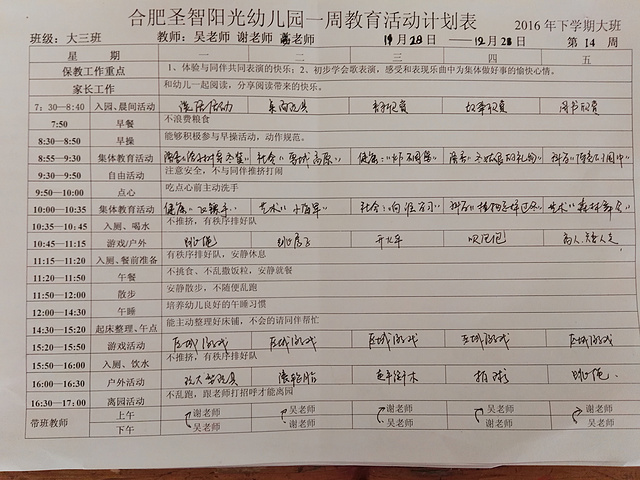 合肥圣智阳光幼儿园一周教育活动计划表
2016年下学期大班
班级：大三班 教师：吴老师 谢老师 老师 月28日 —— 月 日 第14周
星期 一 二 三 四 五
保教工作重点 1、体验与同伴共同表演的快乐；2、初步学会歌表演，感受和表现乐曲中为集体做好事的愉快心情。
家长工作 和幼儿一起阅读，分享阅读带来的快乐。
7：30—8:40 入园、晨间活动 桌面玩具 故事欣赏 图书欣赏
7:50 早餐 不浪费粮食
8:30—8:50 早操 能够积极参与早操活动，动作规范。
8:55—9:30 集体教育活动 社会：" 高原" 健康："
9:30—9:50 自由活动 注意安全，不与同伴推挤打闹
9:50—10:00 点心 吃点心前主动洗手
10:00—10:35 集体教育活动 健康：" 艺术：" 社会：" 科学：" 艺术："森林舞会"
10:35—10:45 入厕、喝水 不推挤，有秩序排好队
10:45—11:15 游戏/户外 跳绳 跳房子 开火车 吹泡泡
11:15—11:20 入厕、餐前准备 有秩序排好队，安静休息
11:20—11:50 午餐 不挑食、不乱撒饭粒，安静就餐
11:50—12:00 散步 安静散步，不随便乱跑
12:00—14:30 午睡 培养幼儿良好的午睡习惯
14:30—15:20 起床整理、午点 能主动整理好床铺，不会的请同伴帮忙
15:20—15:50 游戏活动 区域游戏 区域游戏 区域游戏 区域游戏 区域游戏
15:50—16:00 入厕、饮水 不推挤，有秩序排好队
16:00—16:30 户外活动 玩大型玩具 滚轮胎 拍球 跳绳
16:30—17:00 离园活动 不乱跑，跟老师打招呼才能离园
带班教师 上午 谢老师 吴老师 谢老师 吴老师 谢老师
下午 吴老师 谢老师 吴老师 谢老师 吴老师